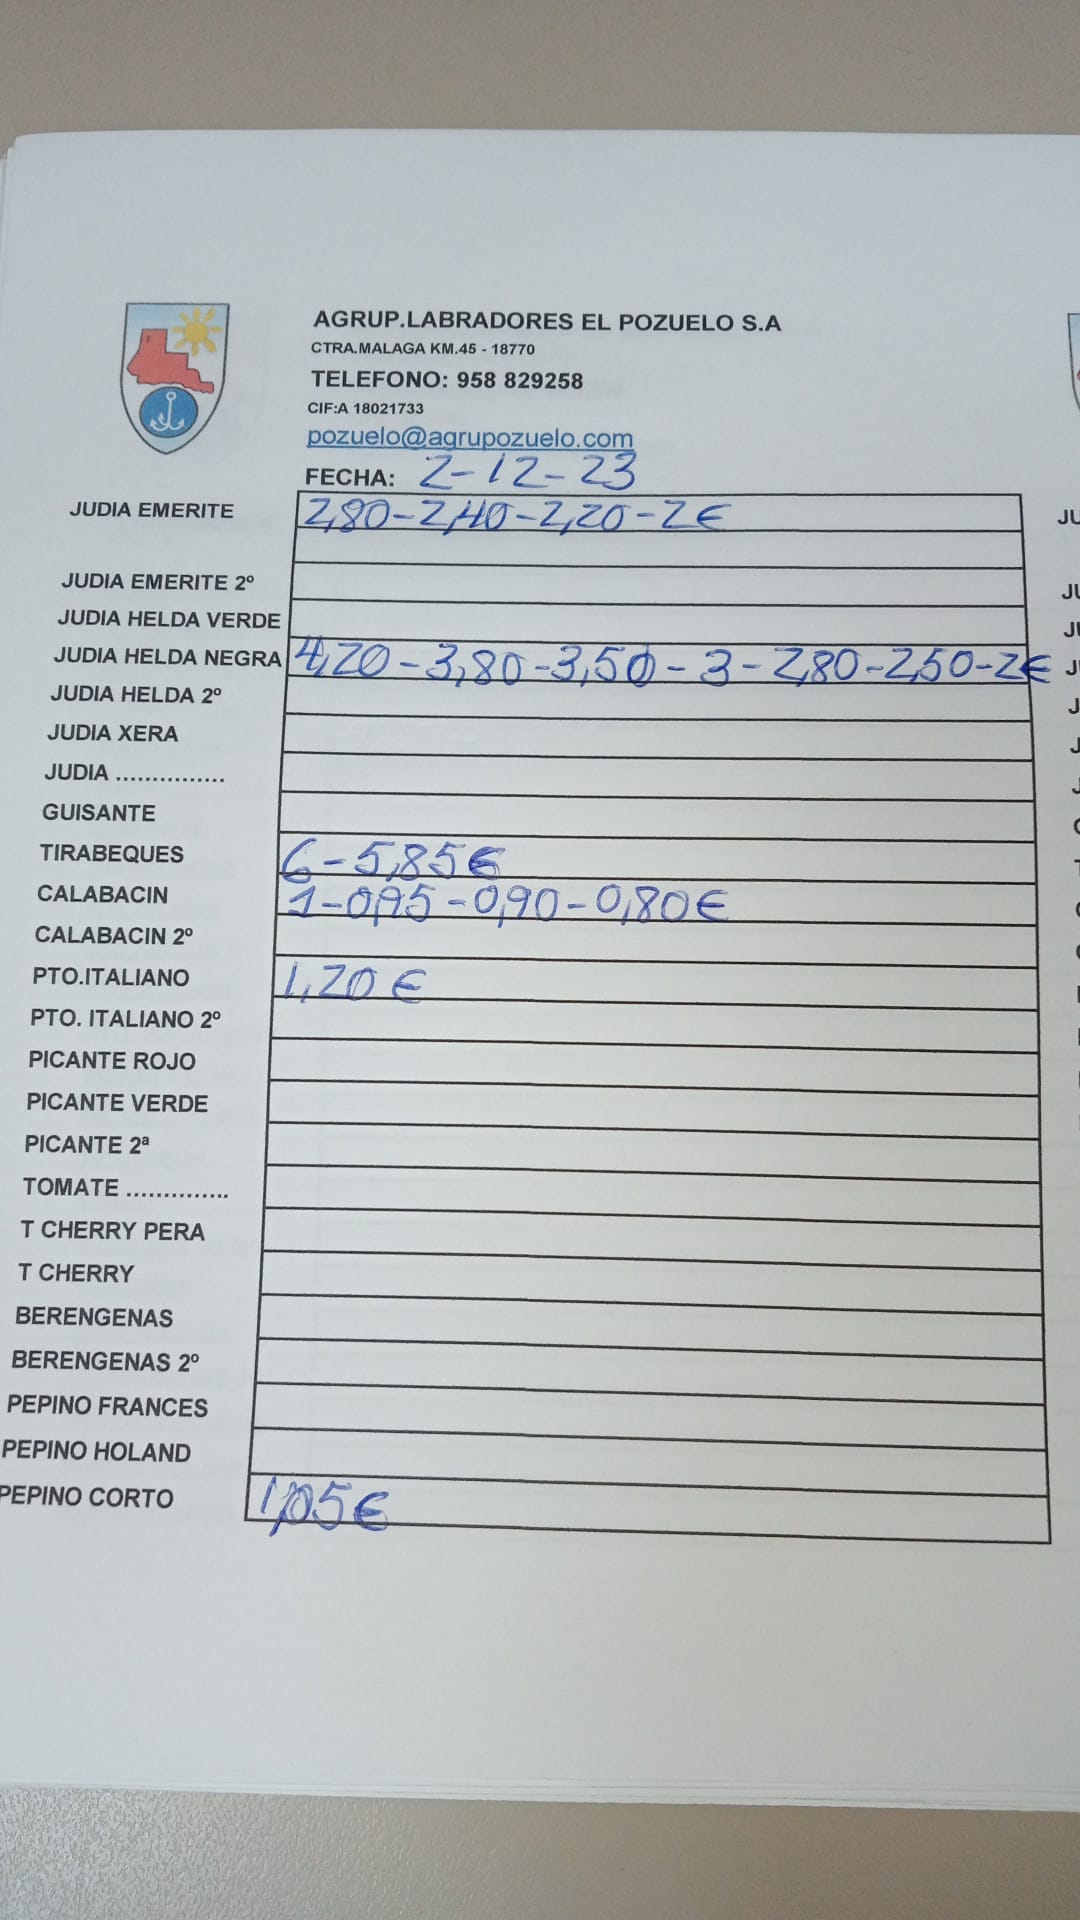 AGRUP.LABRADORES EL POZUELO S.A
CTRA.MALAGA KM.45 - 18770
TELEFONO: 958 829258
CIF:A 18021733
pozuelo@agrupozuelo.com
FECHA: 2-12-23
JUDIA EMERITE 2,80-2,40-2,20-2€
JUDIA EMERITE 2º
JUDIA HELDA VERDE
JUDIA HELDA NEGRA 4,20-3,80-3,50-3-2,80-2,50-2€
JUDIA HELDA 2º
JUDIA XERA
JUDIA ...............
GUISANTE
TIRABEQUES 6-5,85€
CALABACIN 1-0,95-0,90-0,80€
CALABACIN 2º
PTO.ITALIANO 1,20€
PTO. ITALIANO 2º
PICANTE ROJO
PICANTE VERDE
PICANTE 2ª
TOMATE ..............
T CHERRY PERA
T CHERRY
BERENGENAS
BERENGENAS 2º
PEPINO FRANCES
PEPINO HOLAND
PEPINO CORTO 1,05€